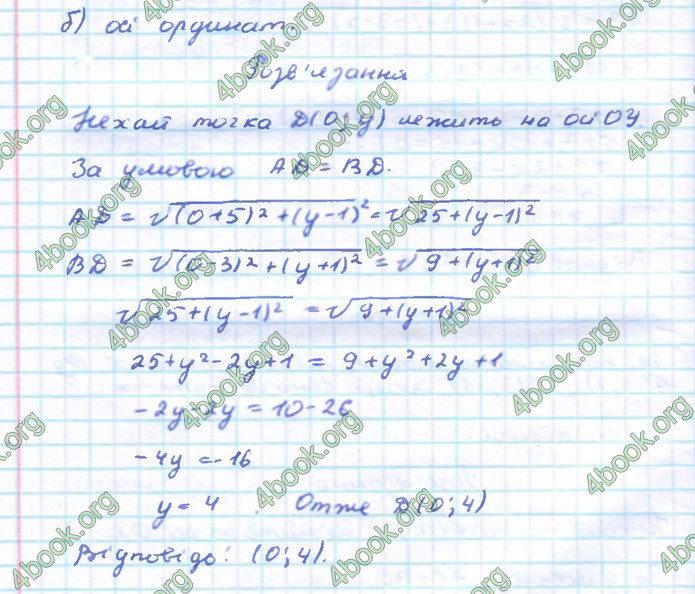 б) осі ординат.
Розв'язання
Нехай точка D(0; y) лежить на осі OY
За умовою AD = BD.
AD = √(0+5)² + (y-1)² = √25+(y-1)²
BD = √(0-3)² + (y+1)² = √9+(y+1)²
√25+(y-1)² = √9+(y+1)²
25+y²-2y+1 = 9+y²+2y+1
-2y-2y = 10-26
-4y = -16
y = 4 . Отже D(0; 4)
Відповідь: (0; 4).
4book.org